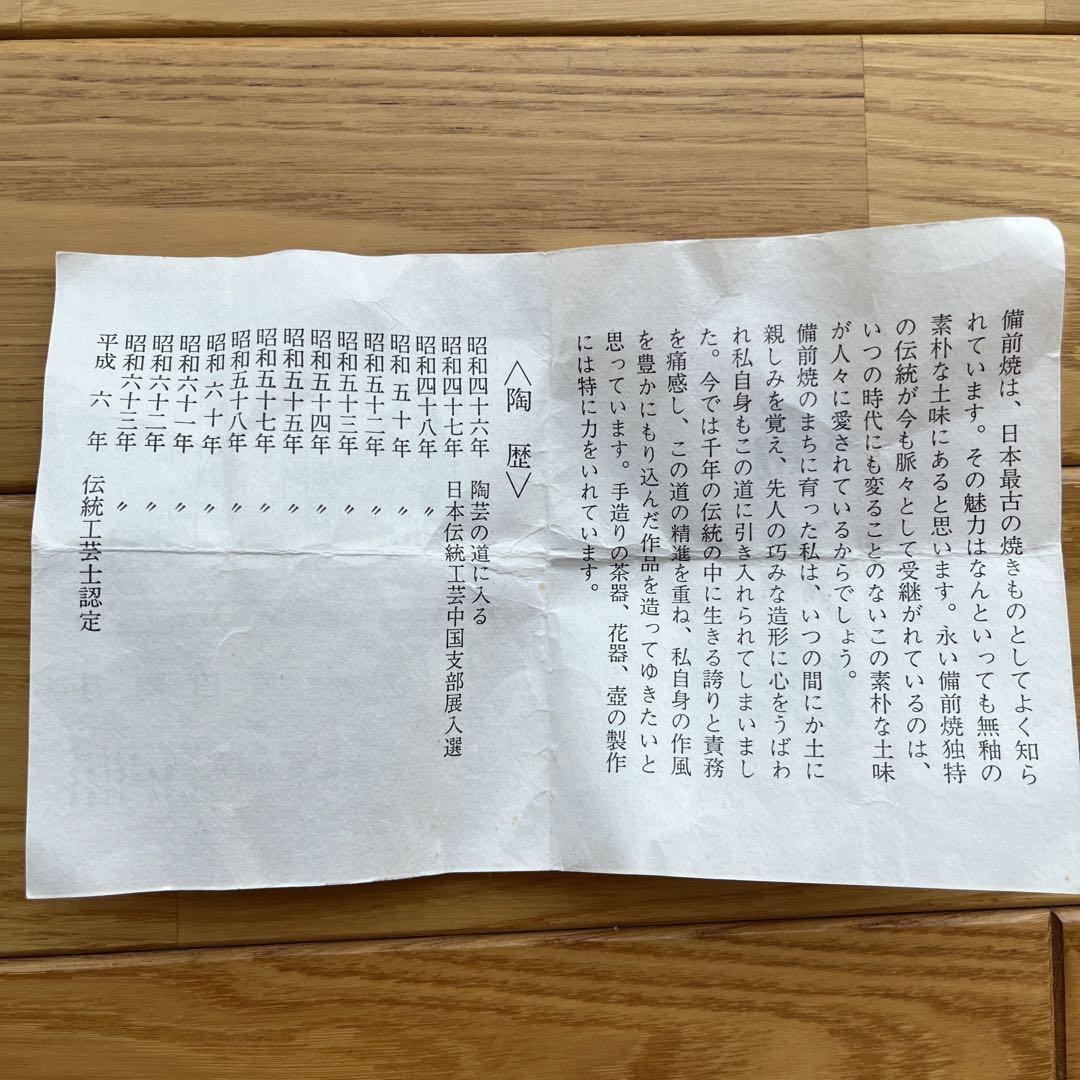 備前焼は、日本最古の焼きものとしてよく知ら
れています。その魅力はなんといっても無釉の
素朴な土味にあると思います。永い備前焼独特
の伝統が今も脈々として受継がれているのは、
いつの時代にも変ることのないこの素朴な土味
が人々に愛されているからでしょう。
備前焼のまちに育った私は、いつの間にか土に
親しみを覚え、先人の巧みな造形に心をうばわ
れ私自身もこの道に引き入れられてしまいまし
た。今では千年の伝統の中に生きる誇りと責務
を痛感し、この道の精進を重ね、私自身の作風
を豊かにもり込んだ作品を造ってゆきたいと
思っています。手造りの茶器、花器、壺の製作
には特に力をいれています。
〈陶歴〉
昭和四十六年 陶芸の道に入る
昭和四十七年 日本伝統工芸中国支部展入選
昭和四十八年 〃
昭和五十年 〃
昭和五十二年 〃
昭和五十三年 〃
昭和五十四年 〃
昭和五十五年 〃
昭和五十七年 〃
昭和五十八年 〃
昭和六十年 〃
昭和六十一年 〃
昭和六十二年 〃
昭和六十三年 〃
平成六年 伝統工芸士認定